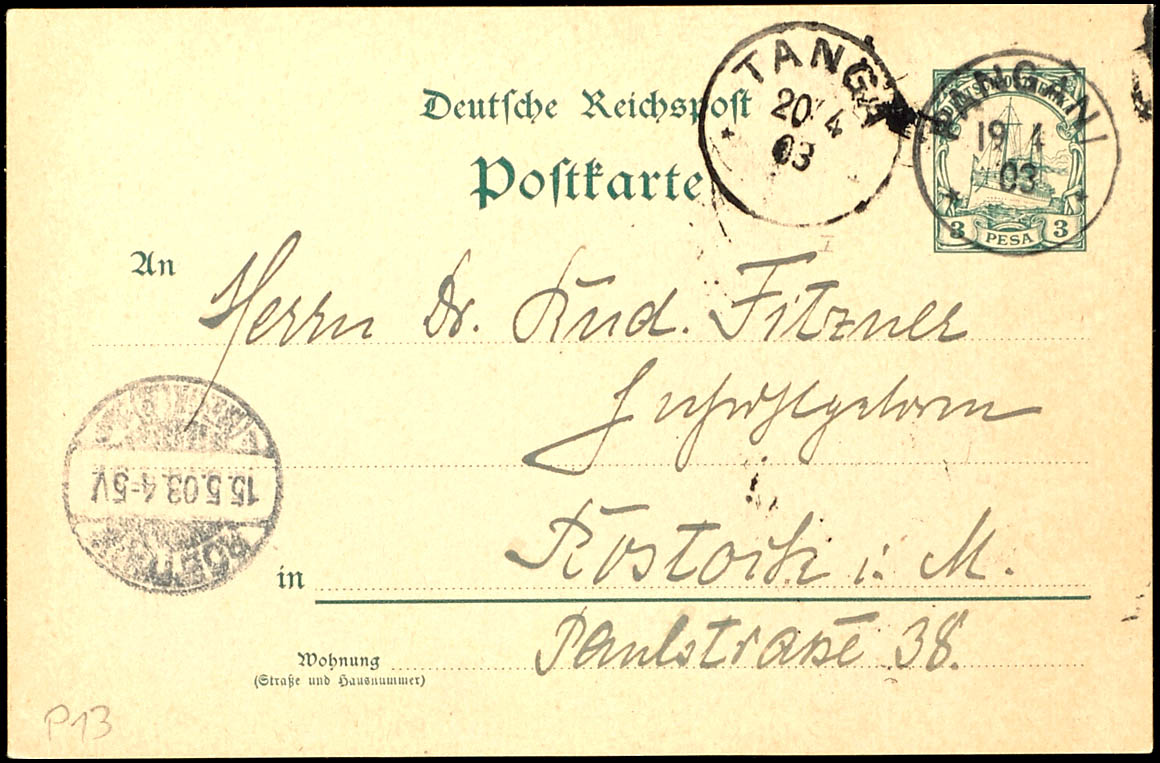 Deutsche Reichspost
Postkarte
TANGA
20 4
03
DEUTSCH-OSTAFRIKA
PANGANI
19 4
03
3 PESA 3
An Herrn Dr. Rud. Fitzner
Rostock i. M.
in
Paulstraße 38.
Wohnung
(Straße und Hausnummer)
15.5.03.4-5V
P13